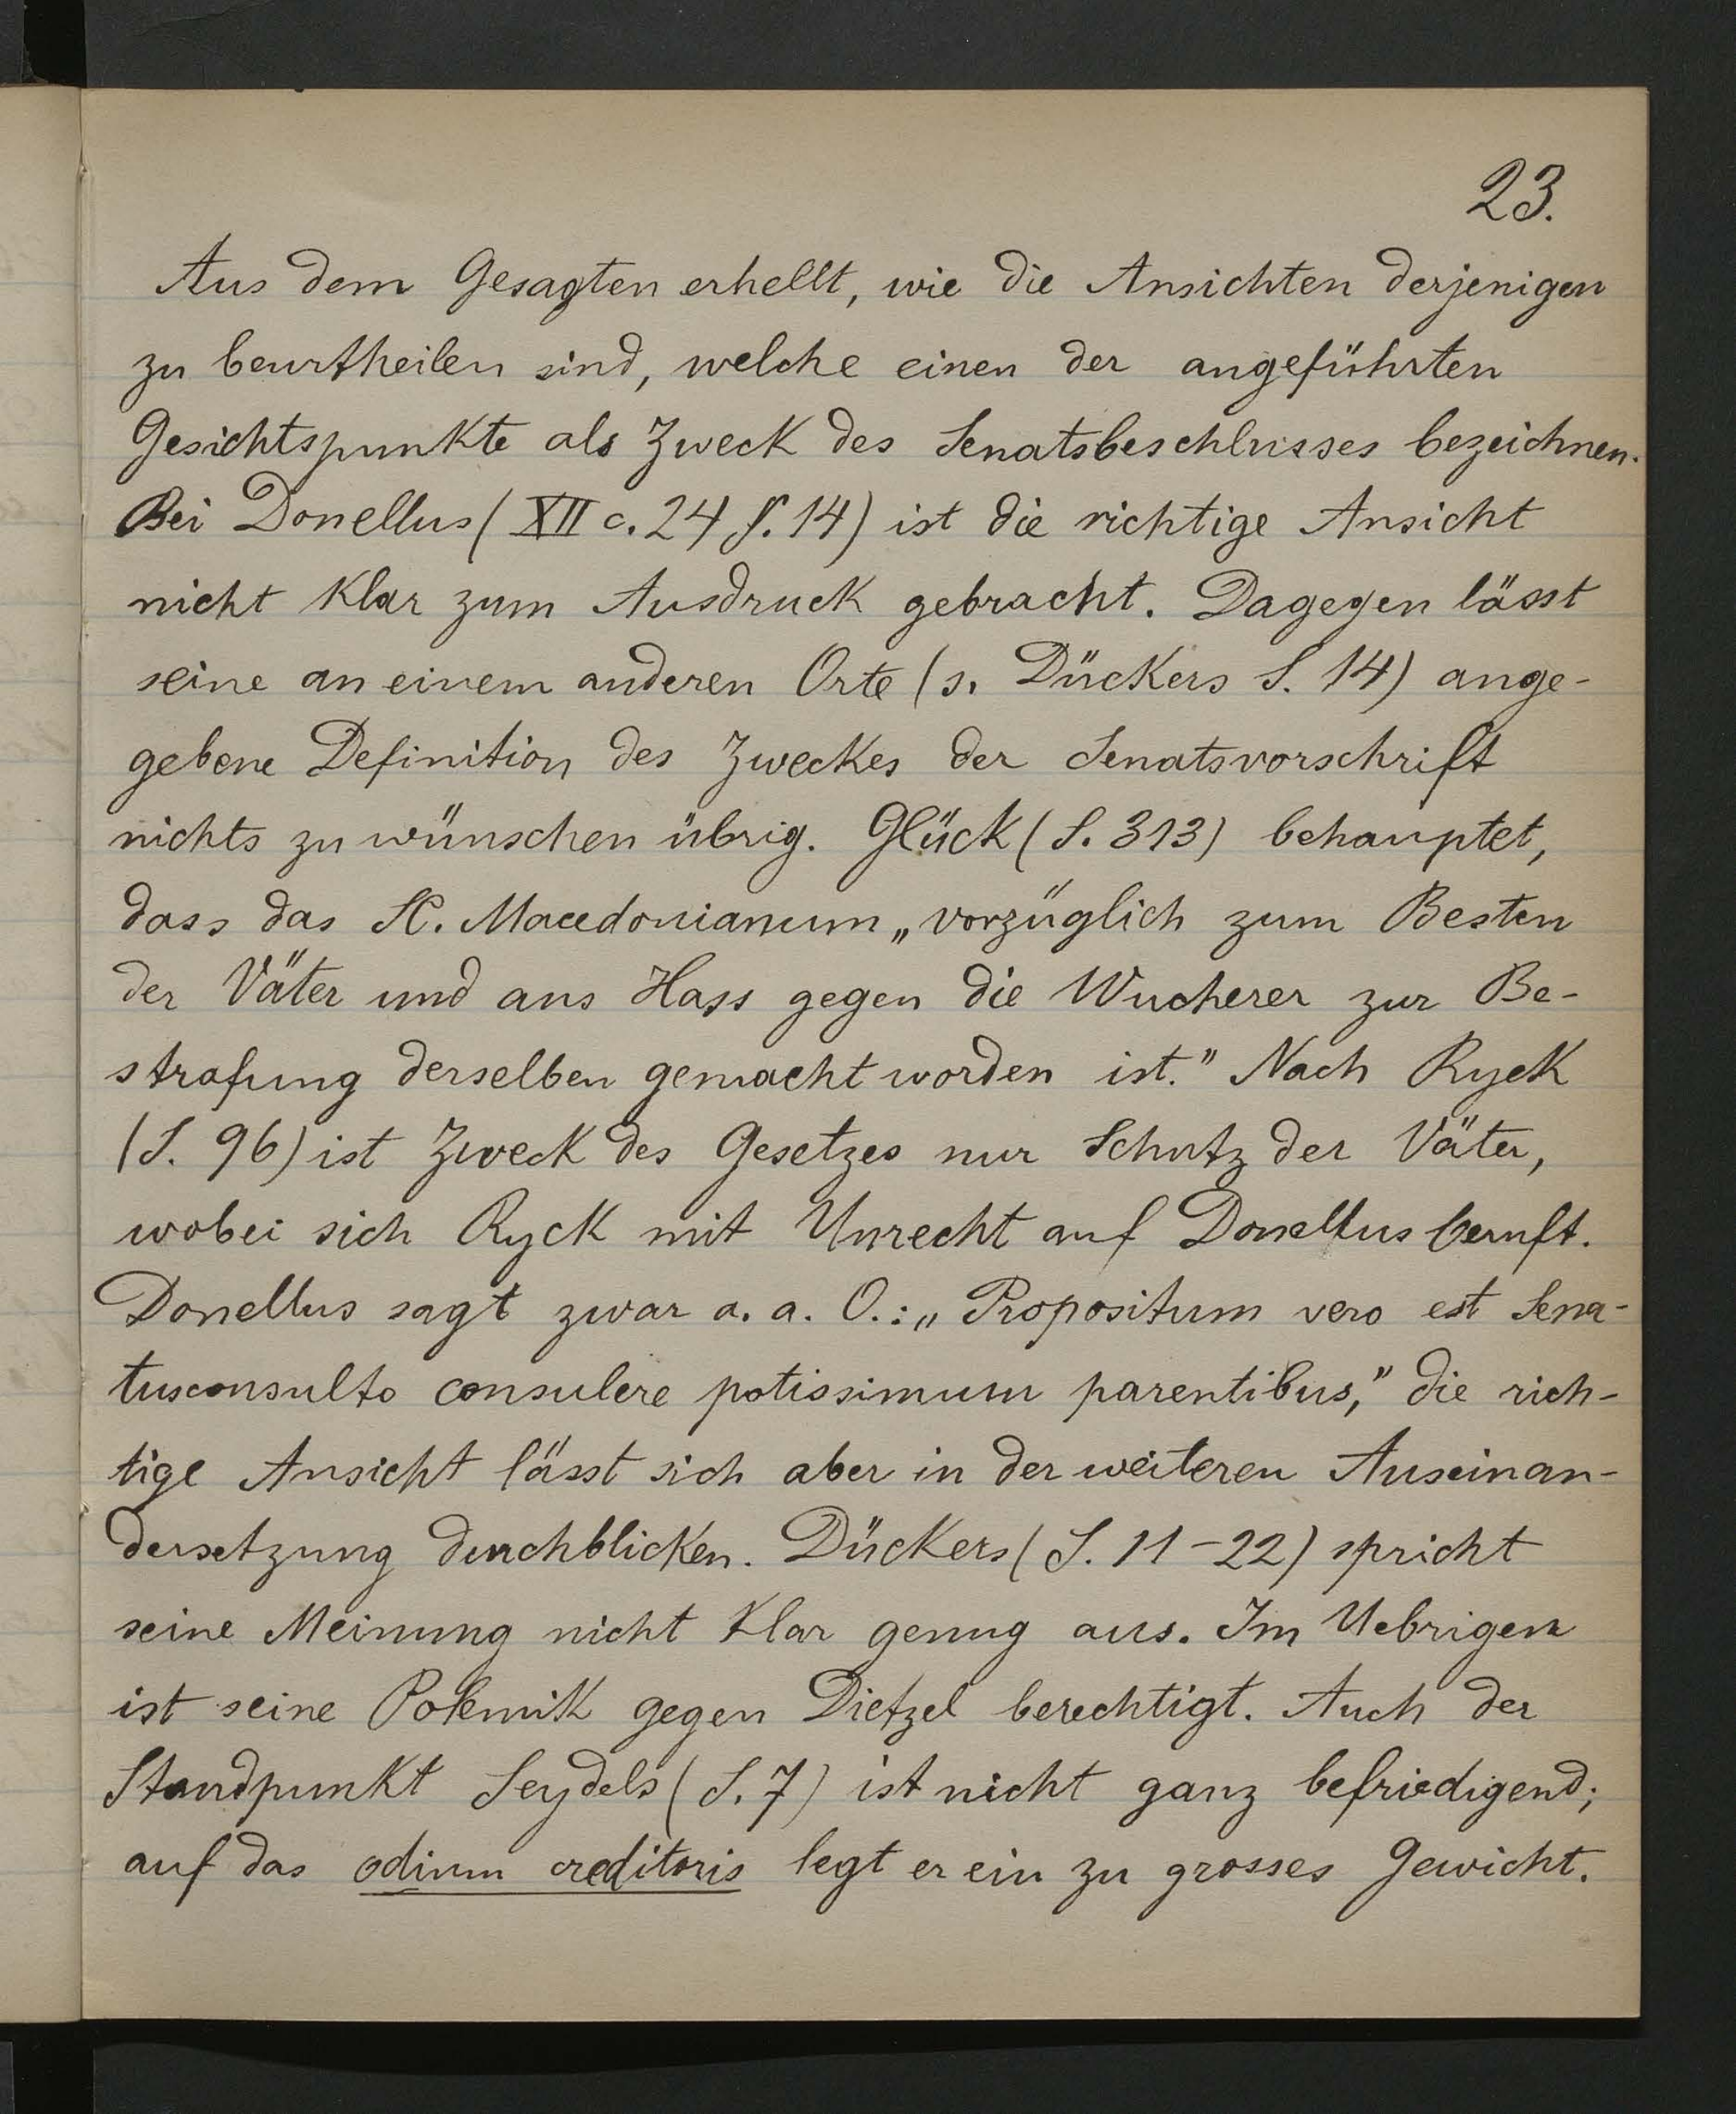 23.
Aus dem Gesagten erhellt, wie die Ansichten derjenigen
zu beurtheilen sind, welche einen der angeführten
Gesichtspunkte als Zweck des Senatsbeschlusses bezeichnen.
Bei Donellus (XII c. 24 §. 14) ist die richtige Ansicht
nicht klar zum Ausdruck gebracht. Dagegen lässt
seine an einem anderen Orte (s. Dückers S. 14) ange-
gebene Definition des Zweckes der Senatsvorschrift
nichts zu wünschen übrig. Glück (S. 313) behauptet,
dass das SC. Macedonianum „vorzüglich zum Besten
der Väter und aus Hass gegen die Wucherer zur Be-
strafung derselben gemacht worden ist.” Nach Ryck
(S. 96) ist Zweck des Gesetzes nur Schutz der Väter,
wobei sich Ryck mit Unrecht auf Donellus beruft.
Donellus sagt zwar a. a. O.: „Propositum vero est Sena-
tusconsulto consulere potissimum parentibus,” die rich-
tige Ansicht lässt sich aber in der weiteren Auseinan-
dersetzung durchblicken. Dückers (S. 11–22) spricht
seine Meinung nicht klar genug aus. Im Uebrigen
ist seine Polemik gegen Dietzel berechtigt. Auch der
Standpunkt Seydels (S. 7) ist nicht ganz befriedigend;
auf das odium creditoris legt er ein zu grosses Gewicht.